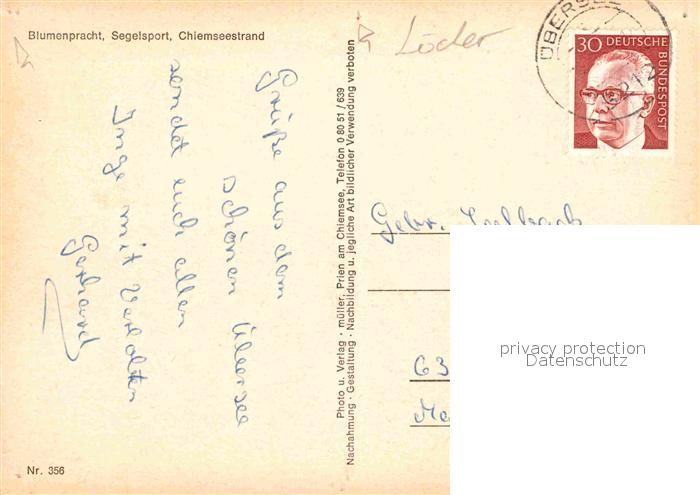 Blumenpracht, Segelsport, Chiemseestrand
Grüße aus dem
schönen Übersee
sendet euch allen
Inge mit Verlobten
Gerhard
Nr. 356
Photo u. Verlag · müller, Prien am Chiemsee, Telefon 0 80 51 / 639
Nachahmung · Gestaltung · Nachbildung u. jegliche Art bildlicher Verwendung verboten
Löder
ÜBERSEE
8212
30 DEUTSCHE
BUNDESPOST
Gebr.
63
privacy protection
Datenschutz